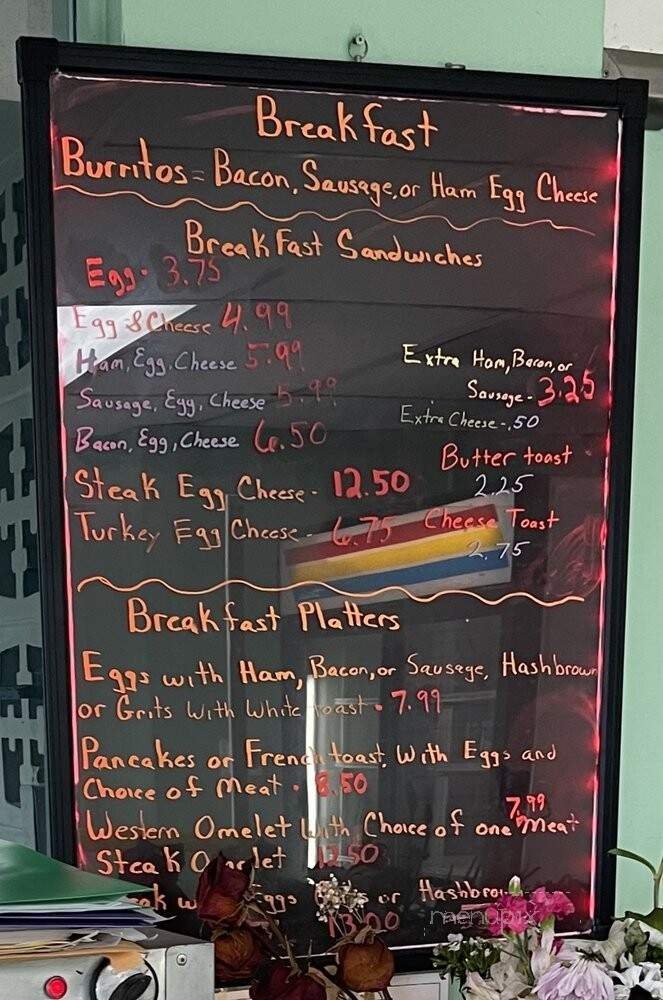 Breakfast
Burritos = Bacon, Sausage, or Ham Egg Cheese
Breakfast Sandwiches
Egg - 3.75
Egg & Cheese 4.99
Ham, Egg, Cheese 5.99
Sausage, Egg, Cheese 5.99
Bacon, Egg, Cheese 6.50
Steak Egg Cheese - 12.50
Turkey Egg Cheese - 6.75
Extra Ham, Bacon, or
Sausage - 3.25
Extra Cheese - .50
Butter toast
2.25
Cheese Toast
2.75
Breakfast Platters
Eggs with Ham, Bacon, or Sausage, Hashbrown
or Grits With White toast • 7.99
Pancakes or French toast, With Eggs and
Choice of Meat • 8.50
Western Omelet With Choice of one Meat
7.99
Steak Omelet 12.50
Eggs or Hashbrown
13.00
menupix